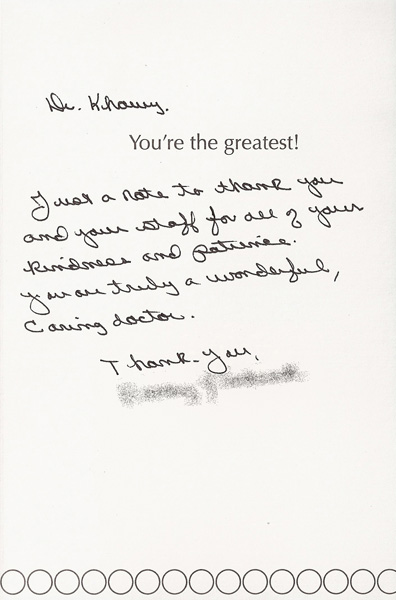 Dr. Khoury.
You're the greatest!
Just a note to thank you
and your staff for all of your
kindness and patience.
You are truly a wonderful,
Caring doctor.
Thank-You,